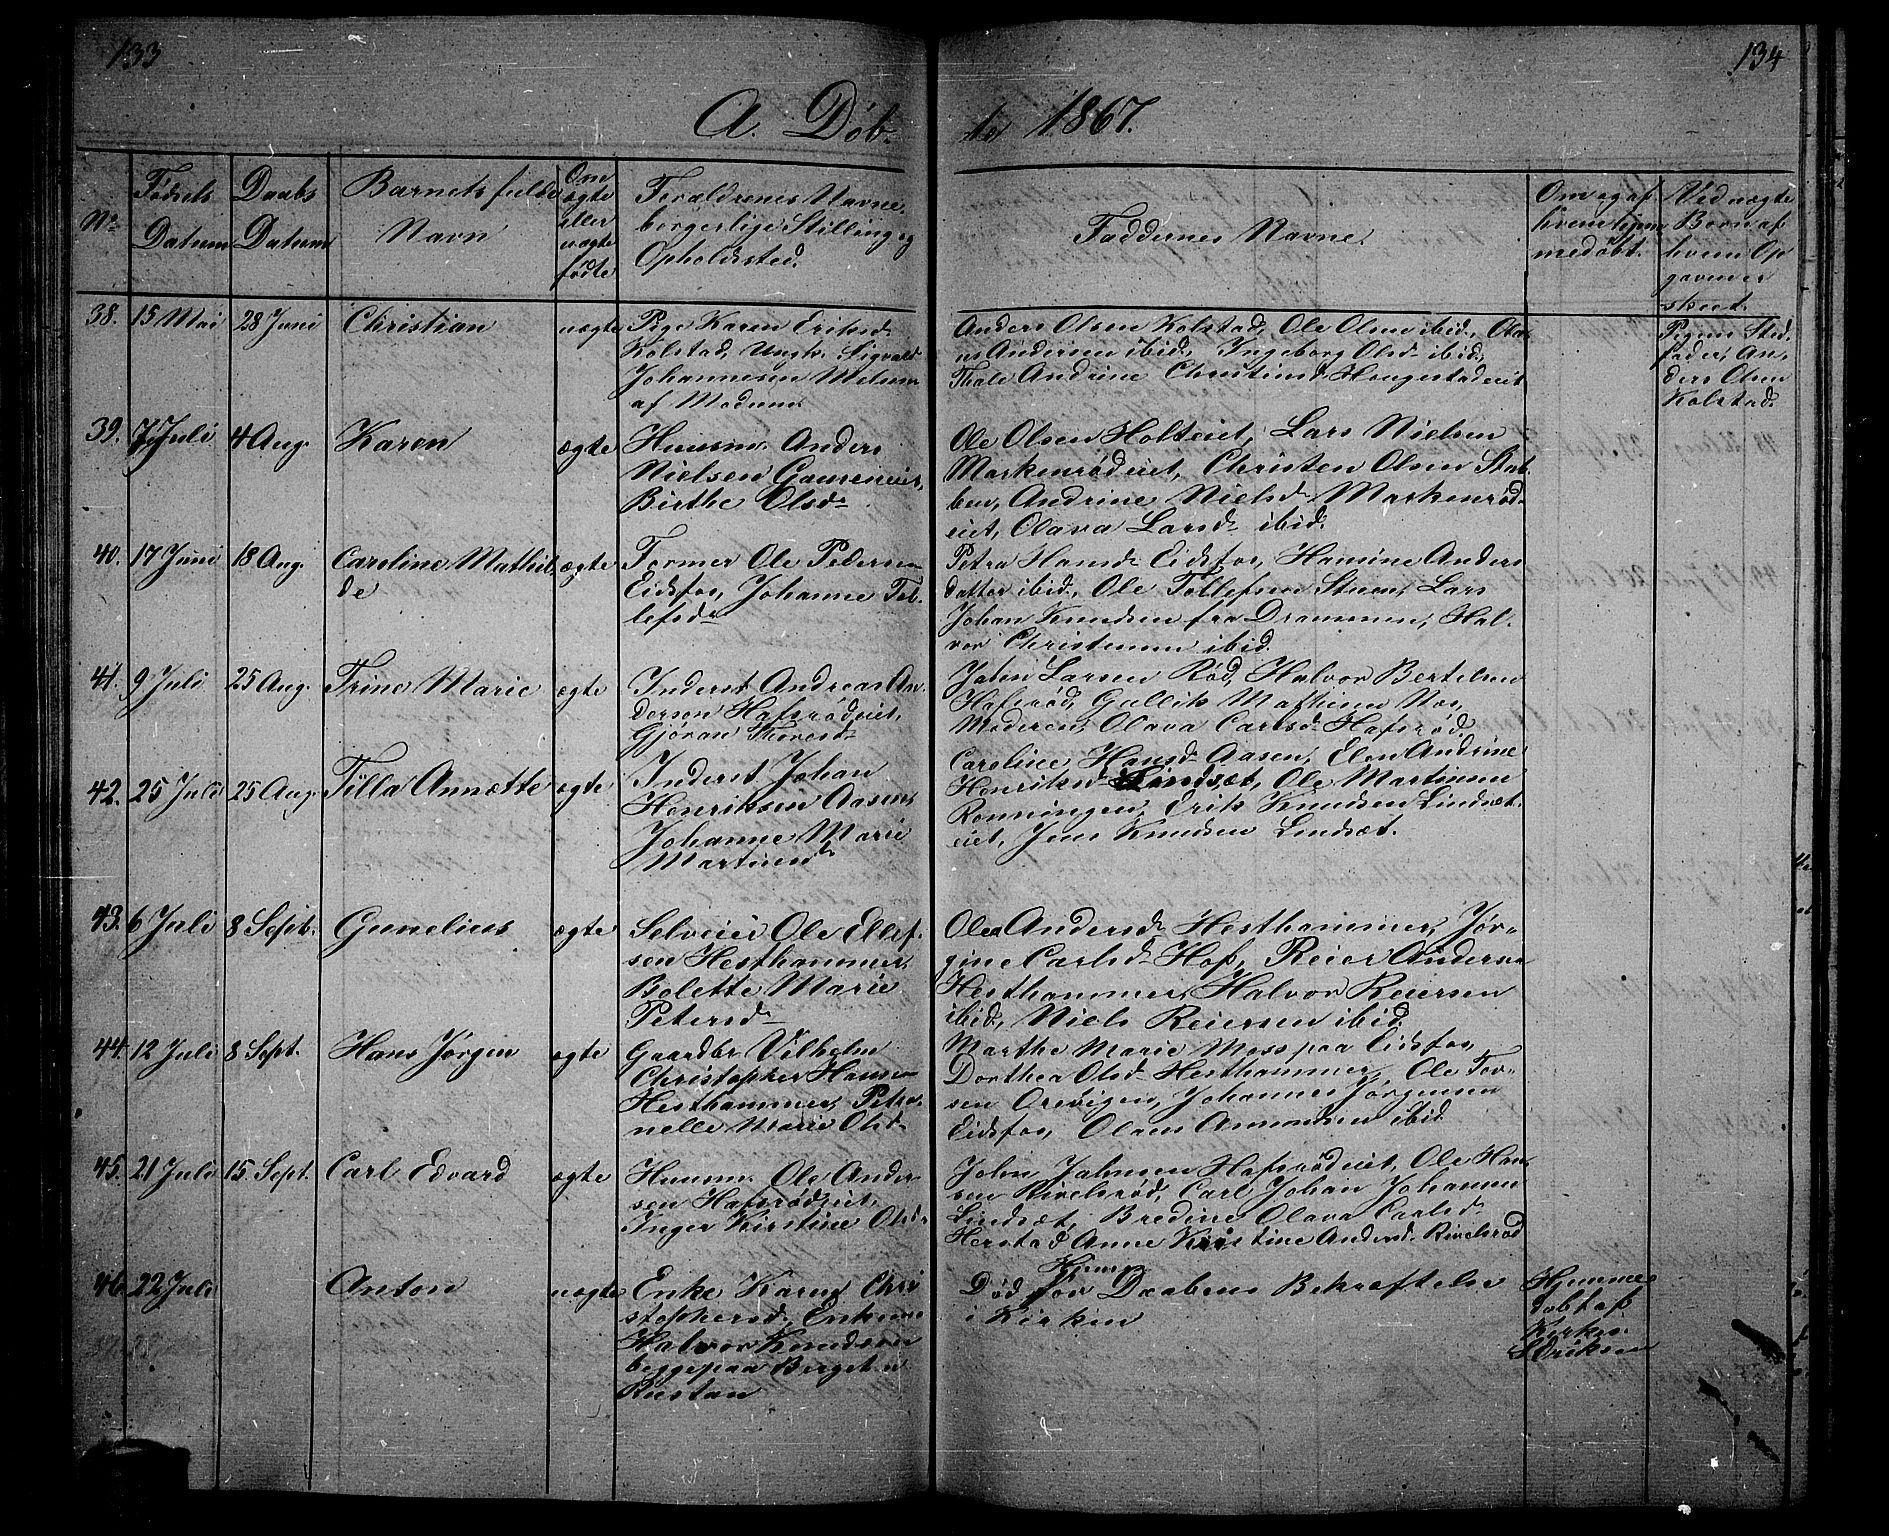 133
134
A. Døb-
te 1867.
No
Fødsels
Datum
Daabs
Datum
Barnets fulde
Navn
Om
ægte
eller
uægte
fødte
Forældrenes Navne,
borgerlige Stilling og
Opholdssted.
Faddernes Navne.
Om og af
hvem hjem-
medøbt.
Ved uægte
Børn af
hvem Op
gaven er
skeet.
38. 15 Mai 28 Juni Christian uægte
Pige Karen Eriksd
Kolstad, Ungk. Sigvald
Johannesen Melum
af Modum
Anders Olsen Kolstad, Ole Olsen ibid., Ola-
us Andersen ibid., Ingeborg Olsd ibid.,
Thale Andrine Christiansd Haugestadeiet
Pigens Sted
fader, An-
ders Olsen
Kolstad.
39. 7 Juli 4 Aug. Karen ægte
Huusm. Anders
Nielsen Gaureneiet,
Birthe Olsd
Ole Olsen Holteiet, Lars Nielsen
Markenrødeiet, Christen Olsen Stub-
ben, Andrine Nielsd Markenrød-
eiet, Olava Larsd ibid.
40. 17 Juni 18 Aug. Caroline Mathil-
de ægte
Former Ole Pedersen
Eidsfos, Johanne Tol-
lefsd
Petra Hansd Eidsfos, Hanine Anders
datter ibid., Ole Tollefsen Stuen, Lars
Johan Knudsen fra Drammen, Hal-
vor Christensen ibid.
41. 9 Juli 25 Aug. Trine Marie ægte
Inderst Andreas An-
dersen Hafsrødeiet,
Gjøran Thoresd
John Larsen Rød, Halvor Bertelsen
Hafsrød, Gullik Mathisen Næs,
Moderen, Olava Carlsd Hafsrød
42. 25 Juli 25 Aug. Tilla Annette ægte
Inderst Johan
Henriksen Aasen,
Johanne Marie
Martinsd
Caroline Hansd Aasen, Elen Andrine
Henriksd Lindsæt, Ole Martinsen
Rønningen, Erik Knudsen Lindsæt-
eiet, Jens Knudsen Lindsæt.
43. 6 Juli 8 Sept. Gunelius ægte
Selveier Ole Ellef-
sen Hesthammer,
Bolette Marie
Petersd
Olea Andersd Hesthammer, Jør-
gine Carlsd Hof, Reier Andersen
Hesthammer, Halvor Reiersen
ibid., Niels Reiersen ibid.
44. 12 Juli 8 Sept. Hans Jørgen ægte
Gaardbr. Vilhelm
Christopher Hansen
Hesthammer, Petro-
nelle Marie Olsd
Marthe Marie Moss paa Eidsfos,
Dorthea Olsd Hesthammer, Ole Tor-
sen Orevigen, Johannes Jørgensen
Eidsfos, Olaus Amundsen ibid
45. 21 Juli 15 Sept. Carl Edvard ægte
Huusm. Ole Ander-
sen Hafsrødeiet,
Inger Kirstine Olsd
John Johnsen Hafsrødeiet, Ole Han-
sen Rivelsrød, Carl Johan Johansen
Lindsæt, Bredine Olava Carlsd
Herstad, Anne Kirstine Andersd Rivelsrød
46. 22 Juli Anton uægte
Enke Karen Chri
stophersd, Enkem.
Halvor Knudsen
begge paa Berget u
Rustan
Død før Hjemme Daabens Bekræftelse
i Kirken
Hjemme
døbt af
Kirkes.
Eriksen